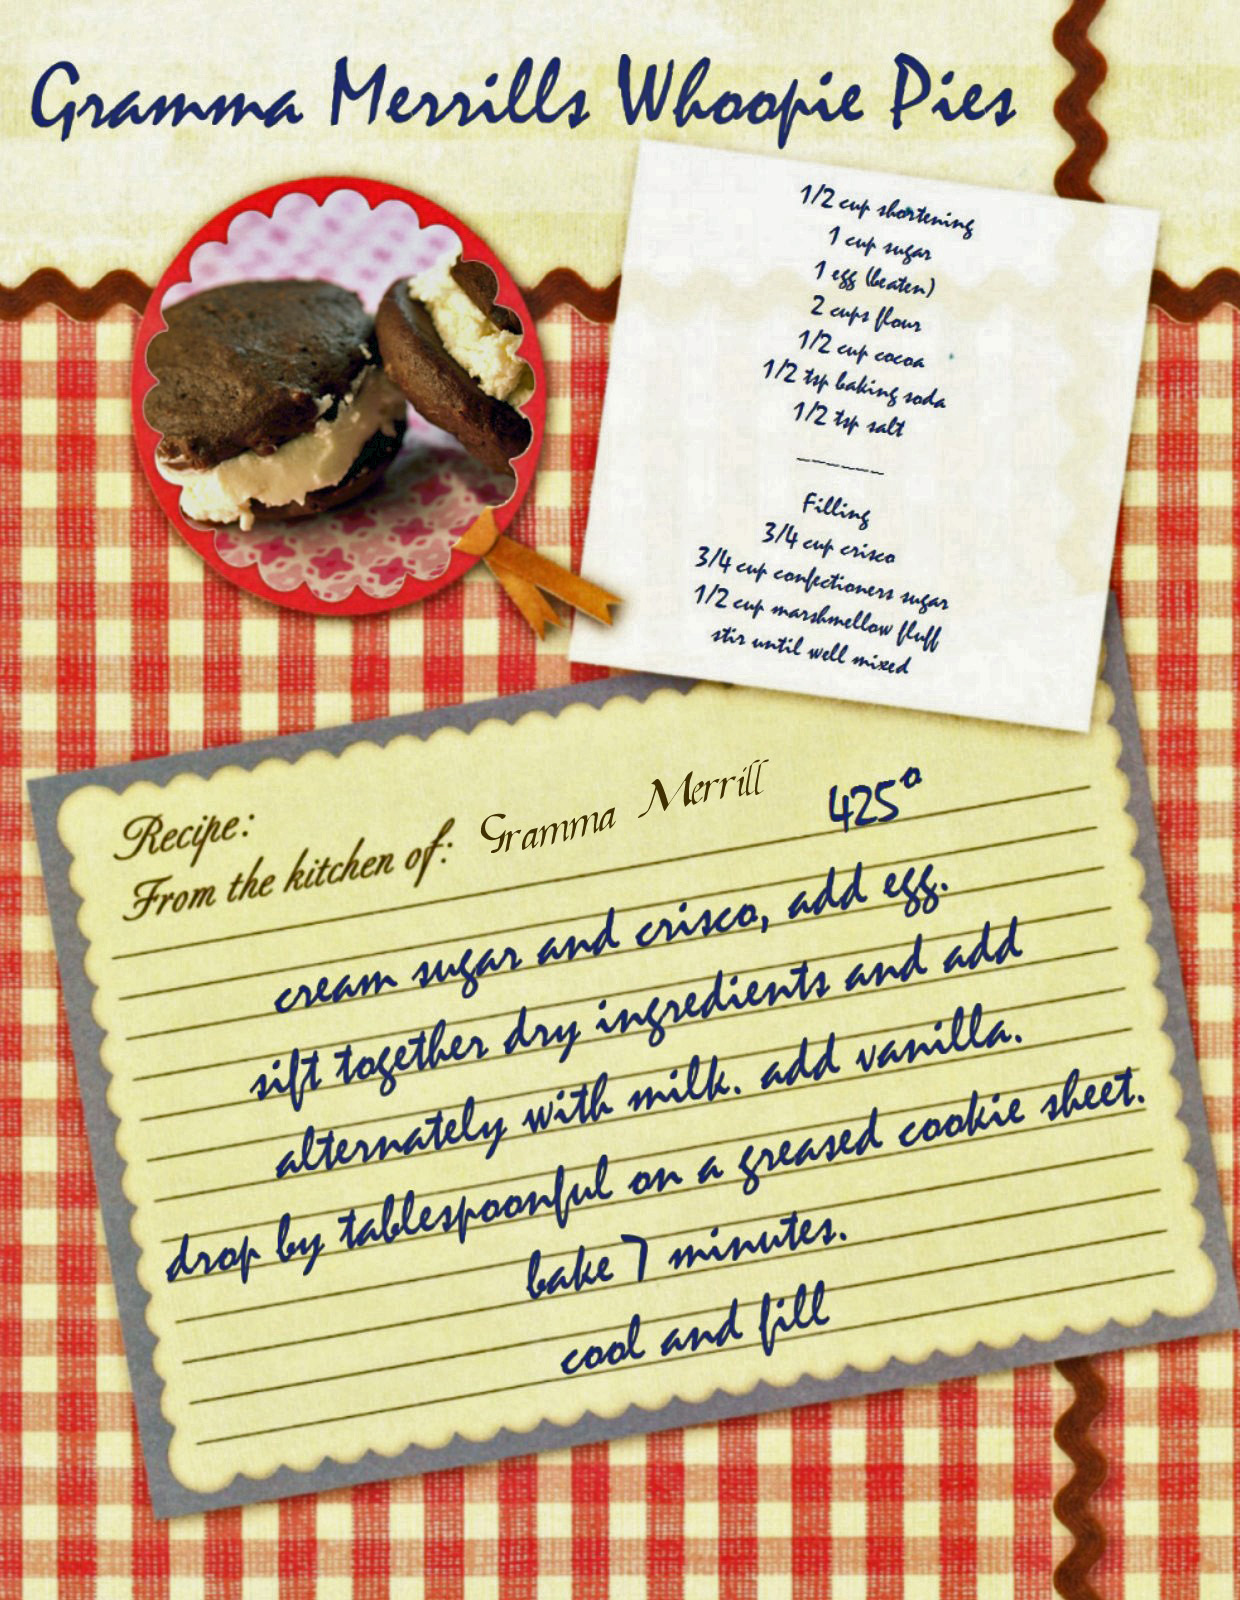 Gramma Merrills Whoopie Pies
1/2 cup shortening
1 cup sugar
1 egg (beaten)
2 cups flour
1/2 cup cocoa
1/2 tsp baking soda
1/2 tsp salt
Filling
3/4 cup crisco
3/4 cup confectioners sugar
1/2 cup marshmellow fluff
stir until well mixed
Recipe:
From the kitchen of: Gramma Merrill
425°
cream sugar and crisco, add egg.
sift together dry ingredients and add
alternately with milk. add vanilla.
drop by tablespoonful on a greased cookie sheet.
bake 7 minutes.
cool and fill